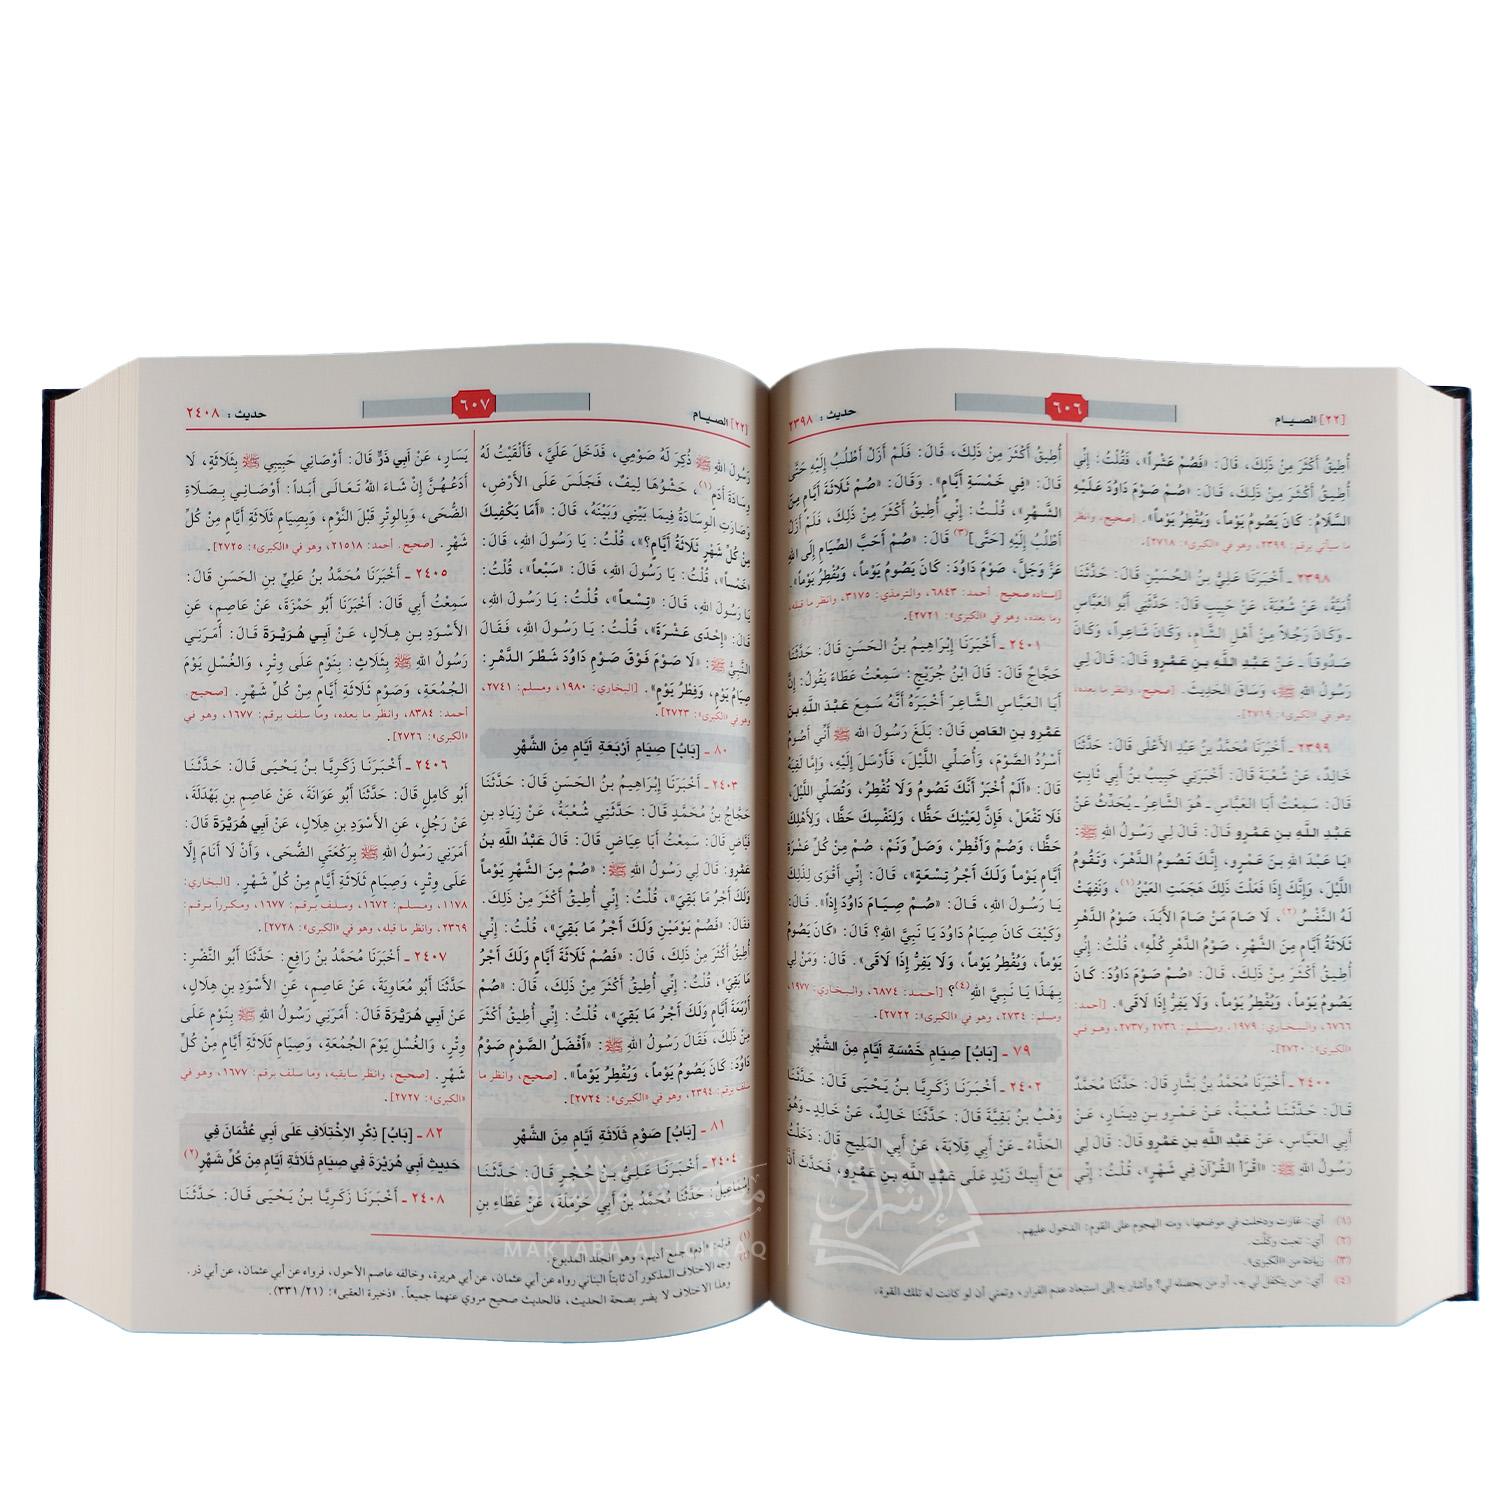 [٢٢] الصيام
٦٠٦
حديث : ٢٣٩٨
أُطِيقُ أَكْثَرَ مِنْ ذَلِكَ، قَالَ: «فَصُمْ عَشْراً»، فَقُلْتُ: إِنِّي
أُطِيقُ أَكْثَرَ مِنْ ذَلِكَ، قَالَ: «صُمْ صَوْمَ دَاوُدَ عَلَيْهِ
السَّلَامُ: كَانَ يَصُومُ يَوْماً، وَيُفْطِرُ يَوْماً». [صحيح، وانظر
ما سيأتي برقم: ٢٣٩٩، وهو في «الكبرى»: ٢٧١٨].
٢٣٩٨ ـ أَخْبَرَنَا عَلِيُّ بنُ الحُسَيْنِ قَالَ: حَدَّثَنَا
أُمَيَّةُ، عَنْ شُعْبَةَ، عَنْ حَبِيبٍ قَالَ: حَدَّثَنِي أَبُو العَبَّاسِ
ـ وَكَانَ رَجُلاً مِنْ أَهْلِ الشَّامِ، وَكَانَ شَاعِراً، وَكَانَ
صَدُوقاً ـ عَنْ عَبْدِ اللهِ بنِ عَمْرٍو قَالَ: قَالَ لِي
رَسُولُ اللهِ ﷺ، وَسَاقَ الحَدِيثَ. [صحيح، وانظر ما بعده،
وهو في «الكبرى»: ٢٧١٩].
٢٣٩٩ ـ أَخْبَرَنَا مُحَمَّدُ بنُ عَبْدِ الأَعْلَى قَالَ: حَدَّثَنَا
خَالِدٌ، عَنْ شُعْبَةَ قَالَ: أَخْبَرَنِي حَبِيبُ بنُ أَبِي ثَابِتٍ
قَالَ: سَمِعْتُ أَبَا العَبَّاسِ ـ هُوَ الشَّاعِرُ ـ يُحَدِّثُ عَنْ
عَبْدِ اللهِ بنِ عَمْرٍو قَالَ: قَالَ لِي رَسُولُ اللهِ ﷺ:
«يَا عَبْدَ اللهِ بنَ عَمْرٍو، إِنَّكَ تَصُومُ الدَّهْرَ، وَتَقُومُ
اللَّيْلَ، وَإِنَّكَ إِذَا فَعَلْتَ ذَلِكَ هَجَمَتِ العَيْنُ(١)، وَنَفِهَتْ
لَهُ النَّفْسُ(٢)، لَا صَامَ مَنْ صَامَ الأَبَدَ، صَوْمُ الدَّهْرِ
ثَلَاثَةُ أَيَّامٍ مِنَ الشَّهْرِ، صَوْمُ الدَّهْرِ كُلِّهِ»، قُلْتُ: إِنِّي
أُطِيقُ أَكْثَرَ مِنْ ذَلِكَ، قَالَ: «صُمْ صَوْمَ دَاوُدَ: كَانَ
يَصُومُ يَوْماً، وَيُفْطِرُ يَوْماً، وَلَا يَفِرُّ إِذَا لَاقَى». [أحمد:
٦٧٦٦، والبخاري: ١٩٧٩، ومسلم: ٢٧٣٦ و٢٧٣٧، وهو في
«الكبرى»: ٢٧٢٠].
٢٤٠٠ ـ أَخْبَرَنَا مُحَمَّدُ بنُ بَشَّارٍ قَالَ: حَدَّثَنَا مُحَمَّدٌ
قَالَ: حَدَّثَنَا شُعْبَةُ، عَنْ عَمْرِو بنِ دِينَارٍ، عَنْ
أَبِي العَبَّاسِ، عَنْ عَبْدِ اللهِ بنِ عَمْرٍو قَالَ: قَالَ لِي
رَسُولُ اللهِ ﷺ: «اقْرَأِ القُرْآنَ فِي شَهْرٍ»، قُلْتُ: إِنِّي
أُطِيقُ أَكْثَرَ مِنْ ذَلِكَ، قَالَ: فَلَمْ أَزَلْ أَطْلُبُ إِلَيْهِ حَتَّى
قَالَ: «فِي خَمْسَةِ أَيَّامٍ». وَقَالَ: «صُمْ ثَلَاثَةَ أَيَّامٍ مِنَ
الشَّهْرِ»، قُلْتُ: إِنِّي أُطِيقُ أَكْثَرَ مِنْ ذَلِكَ، فَلَمْ أَزَلْ
أَطْلُبُ إِلَيْهِ [حَتَّى](٣) قَالَ: «صُمْ أَحَبَّ الصِّيَامِ إِلَى اللهِ
عَزَّ وَجَلَّ، صَوْمَ دَاوُدَ: كَانَ يَصُومُ يَوْماً، وَيُفْطِرُ يَوْماً».
[إسناده صحيح. أحمد: ٦٨٤٣، والترمذي: ٣١٧٥، وانظر ما قبله،
وما بعده، وهو في «الكبرى»: ٢٧٢١].
٢٤٠١ ـ أَخْبَرَنَا إِبْرَاهِيمُ بنُ الحَسَنِ قَالَ: حَدَّثَنَا
حَجَّاجٌ قَالَ: قَالَ ابْنُ جُرَيْجٍ: سَمِعْتُ عَطَاءً يَقُولُ: إِنَّ
أَبَا العَبَّاسِ الشَّاعِرَ أَخْبَرَهُ أَنَّهُ سَمِعَ عَبْدَ اللهِ بنَ
عَمْرِو بنِ العَاصِ قَالَ: بَلَغَ رَسُولَ اللهِ ﷺ أَنِّي أَصُومُ
أَسْرُدُ الصَّوْمَ، وَأُصَلِّي اللَّيْلَ، فَأَرْسَلَ إِلَيْهِ، وَإِمَّا لَقِيَهُ
قَالَ: «أَلَمْ أُخْبَرْ أَنَّكَ تَصُومُ وَلَا تُفْطِرُ، وَتُصَلِّي اللَّيْلَ،
فَلَا تَفْعَلْ، فَإِنَّ لِعَيْنِكَ حَظًّا، وَلِنَفْسِكَ حَظًّا، وَلِأَهْلِكَ
حَظًّا، وَصُمْ وَأَفْطِرْ، وَصَلِّ وَنَمْ، صُمْ مِنْ كُلِّ عَشْرَةِ
أَيَّامٍ يَوْماً وَلَكَ أَجْرُ تِسْعَةٍ»، قَالَ: إِنِّي أَقْوَى لِذَلِكَ
يَا رَسُولَ اللهِ، قَالَ: «صُمْ صِيَامَ دَاوُدَ إِذاً». قَالَ:
وَكَيْفَ كَانَ صِيَامُ دَاوُدَ يَا نَبِيَّ اللهِ؟ قَالَ: «كَانَ يَصُومُ
يَوْماً، وَيُفْطِرُ يَوْماً، وَلَا يَفِرُّ إِذَا لَاقَى». قَالَ: وَمَنْ لِي
بِهَذَا يَا نَبِيَّ اللهِ(٤)؟ [أحمد: ٦٨٧٤، والبخاري: ١٩٧٧،
ومسلم: ٢٧٣٤، وهو في «الكبرى»: ٢٧٢٢].
٧٩ ـ [بَابُ] صِيَامِ خَمْسَةِ أَيَّامٍ مِنَ الشَّهْرِ
٢٤٠٢ ـ أَخْبَرَنَا زَكَرِيَّا بنُ يَحْيَى قَالَ: حَدَّثَنَا
وَهْبُ بنُ بَقِيَّةَ قَالَ: حَدَّثَنَا خَالِدٌ، عَنْ خَالِدٍ ـ وَهُوَ
الحَذَّاءُ ـ عَنْ أَبِي قِلَابَةَ، عَنْ أَبِي المَلِيحِ قَالَ: دَخَلْتُ
مَعَ أَبِيكَ زَيْدٍ عَلَى عَبْدِ اللهِ بنِ عَمْرٍو، فَحَدَّثَ أَنَّ
(١) أي: غارت ودخلت في موضعها، ومنه الهجوم على القوم: الدخول عليهم.
(٢) أي: تعبت وكلَّت.
(٣) زيادة من «الكبرى».
(٤) أي: من يتكفل لي به، أو من يحصله لي؟ وأشار به إلى استبعاد عدم الفرار، وتمنى أن لو كانت له تلك القوة.
[٢٢] الصيام
٦٠٧
حديث : ٢٤٠٨
رَسُولَ اللهِ ﷺ ذُكِرَ لَهُ صَوْمِي، فَدَخَلَ عَلَيَّ، فَأَلْقَيْتُ لَهُ
وِسَادَةَ أَدَمٍ(١)، حَشْوُهَا لِيفٌ، فَجَلَسَ عَلَى الأَرْضِ،
وَصَارَتِ الوِسَادَةُ فِيمَا بَيْنِي وَبَيْنَهُ، قَالَ: «أَمَا يَكْفِيكَ
مِنْ كُلِّ شَهْرٍ ثَلَاثَةُ أَيَّامٍ؟»، قُلْتُ: يَا رَسُولَ اللهِ، قَالَ:
«خَمْساً»، قُلْتُ: يَا رَسُولَ اللهِ، قَالَ: «سَبْعاً»، قُلْتُ:
يَا رَسُولَ اللهِ، قَالَ: «تِسْعاً»، قُلْتُ: يَا رَسُولَ اللهِ،
قَالَ: «إِحْدَى عَشْرَةَ»، قُلْتُ: يَا رَسُولَ اللهِ، فَقَالَ
النَّبِيُّ ﷺ: «لَا صَوْمَ فَوْقَ صَوْمِ دَاوُدَ شَطْرَ الدَّهْرِ:
صِيَامُ يَوْمٍ، وَفِطْرُ يَوْمٍ». [البخاري: ١٩٨٠، ومسلم: ٢٧٤١،
وهو في «الكبرى»: ٢٧٢٣].
٨٠ ـ [بَابُ] صِيَامِ أَرْبَعَةِ أَيَّامٍ مِنَ الشَّهْرِ
٢٤٠٣ ـ أَخْبَرَنَا إِبْرَاهِيمُ بنُ الحَسَنِ قَالَ: حَدَّثَنَا
حَجَّاجُ بنُ مُحَمَّدٍ قَالَ: حَدَّثَنِي شُعْبَةُ، عَنْ زِيَادِ بنِ
فَيَّاضٍ قَالَ: سَمِعْتُ أَبَا عِيَاضٍ قَالَ: قَالَ عَبْدُ اللهِ بنُ
عَمْرٍو: قَالَ لِي رَسُولُ اللهِ ﷺ: «صُمْ مِنَ الشَّهْرِ يَوْماً
وَلَكَ أَجْرُ مَا بَقِيَ»، قُلْتُ: إِنِّي أُطِيقُ أَكْثَرَ مِنْ ذَلِكَ.
فَقَالَ: «فَصُمْ يَوْمَيْنِ وَلَكَ أَجْرُ مَا بَقِيَ»، قُلْتُ: إِنِّي
أُطِيقُ أَكْثَرَ مِنْ ذَلِكَ، قَالَ: «فَصُمْ ثَلَاثَةَ أَيَّامٍ وَلَكَ أَجْرُ
مَا بَقِيَ»، قُلْتُ: إِنِّي أُطِيقُ أَكْثَرَ مِنْ ذَلِكَ، قَالَ: «صُمْ
أَرْبَعَةَ أَيَّامٍ وَلَكَ أَجْرُ مَا بَقِيَ»، قُلْتُ: إِنِّي أُطِيقُ أَكْثَرَ
مِنْ ذَلِكَ، فَقَالَ رَسُولُ اللهِ ﷺ: «أَفْضَلُ الصَّوْمِ صَوْمُ
دَاوُدَ: كَانَ يَصُومُ يَوْماً، وَيُفْطِرُ يَوْماً». [صحيح، وانظر ما
سلف برقم: ٢٣٩٤، وهو في «الكبرى»: ٢٧٢٤].
٨١ ـ [بَابُ] صَوْمِ ثَلَاثَةِ أَيَّامٍ مِنَ الشَّهْرِ
٢٤٠٤ ـ أَخْبَرَنَا عَلِيُّ بنُ حُجْرٍ قَالَ: حَدَّثَنَا
إِسْمَاعِيلُ: حَدَّثَنَا مُحَمَّدُ بنُ أَبِي حَرْمَلَةَ، عَنْ عَطَاءِ بنِ
يَسَارٍ، عَنْ أَبِي ذَرٍّ قَالَ: أَوْصَانِي حَبِيبِي ﷺ بِثَلَاثَةٍ، لَا
أَدَعُهُنَّ إِنْ شَاءَ اللهُ تَعَالَى أَبَداً: أَوْصَانِي بِصَلَاةِ
الضُّحَى، وَبِالوِتْرِ قَبْلَ النَّوْمِ، وَبِصِيَامِ ثَلَاثَةِ أَيَّامٍ مِنْ كُلِّ
شَهْرٍ. [صحيح. أحمد: ٢١٥١٨، وهو في «الكبرى»: ٢٧٢٥].
٢٤٠٥ ـ أَخْبَرَنَا مُحَمَّدُ بنُ عَلِيِّ بنِ الحَسَنِ قَالَ:
سَمِعْتُ أَبِي قَالَ: أَخْبَرَنَا أَبُو حَمْزَةَ، عَنْ عَاصِمٍ، عَنِ
الأَسْوَدِ بنِ هِلَالٍ، عَنْ أَبِي هُرَيْرَةَ قَالَ: أَمَرَنِي
رَسُولُ اللهِ ﷺ بِثَلَاثٍ: بِنَوْمٍ عَلَى وِتْرٍ، وَالغُسْلِ يَوْمَ
الجُمُعَةِ، وَصَوْمِ ثَلَاثَةِ أَيَّامٍ مِنْ كُلِّ شَهْرٍ. [صحيح.
أحمد: ٨٣٨٤، وانظر ما بعده، وما سلف برقم: ١٦٧٧، وهو في
«الكبرى»: ٢٧٢٦].
٢٤٠٦ ـ أَخْبَرَنَا زَكَرِيَّا بنُ يَحْيَى قَالَ: حَدَّثَنَا
أَبُو كَامِلٍ قَالَ: حَدَّثَنَا أَبُو عَوَانَةَ، عَنْ عَاصِمِ بنِ بَهْدَلَةَ،
عَنْ رَجُلٍ، عَنِ الأَسْوَدِ بنِ هِلَالٍ، عَنْ أَبِي هُرَيْرَةَ قَالَ:
أَمَرَنِي رَسُولُ اللهِ ﷺ بِرَكْعَتَيِ الضُّحَى، وَأَنْ لَا أَنَامَ إِلَّا
عَلَى وِتْرٍ، وَصِيَامِ ثَلَاثَةِ أَيَّامٍ مِنْ كُلِّ شَهْرٍ. [البخاري:
١١٧٨، ومسلم: ١٦٧٢، وسلف برقم: ١٦٧٧، ومكرراً برقم:
٢٣٦٩، وانظر ما قبله، وهو في «الكبرى»: ٢٧٢٨].
٢٤٠٧ ـ أَخْبَرَنَا مُحَمَّدُ بنُ رَافِعٍ: حَدَّثَنَا أَبُو النَّضْرِ:
حَدَّثَنَا أَبُو مُعَاوِيَةَ، عَنْ عَاصِمٍ، عَنِ الأَسْوَدِ بنِ هِلَالٍ،
عَنْ أَبِي هُرَيْرَةَ قَالَ: أَمَرَنِي رَسُولُ اللهِ ﷺ بِنَوْمٍ عَلَى
وِتْرٍ، وَالغُسْلِ يَوْمَ الجُمُعَةِ، وَصِيَامِ ثَلَاثَةِ أَيَّامٍ مِنْ كُلِّ
شَهْرٍ. [صحيح، وانظر سابقيه، وما سلف برقم: ١٦٧٧، وهو في
«الكبرى»: ٢٧٢٧].
٨٢ ـ [بَابُ] ذِكْرِ الاِخْتِلَافِ عَلَى أَبِي عُثْمَانَ فِي
حَدِيثِ أَبِي هُرَيْرَةَ فِي صِيَامِ ثَلَاثَةِ أَيَّامٍ مِنْ كُلِّ شَهْرٍ(٢)
٢٤٠٨ ـ أَخْبَرَنَا زَكَرِيَّا بنُ يَحْيَى قَالَ: حَدَّثَنَا
(١) قوله: «أدم» جمع أديم، وهو الجلد المدبوغ.
(٢) وجه الاختلاف المذكور أن ثابتاً البناني رواه عن أبي عثمان، عن أبي هريرة، وخالفه عاصم الأحول، فرواه عن أبي عثمان، عن أبي ذر.
وهذا الاختلاف لا يضر بصحة الحديث، فالحديث صحيح مروي عنهما جميعاً. «ذخيرة العقبى»: (٣٣١/٢١).
مكتبة الإشراق
MAKTABA AL ICHRAQ
الإشراق